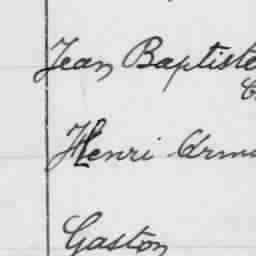 Jean Baptiste
Henri
Gaston